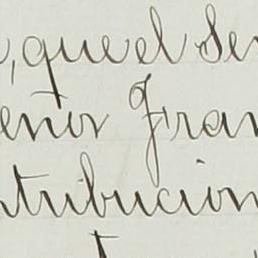 , que el Se
eñor Fran
ntribución